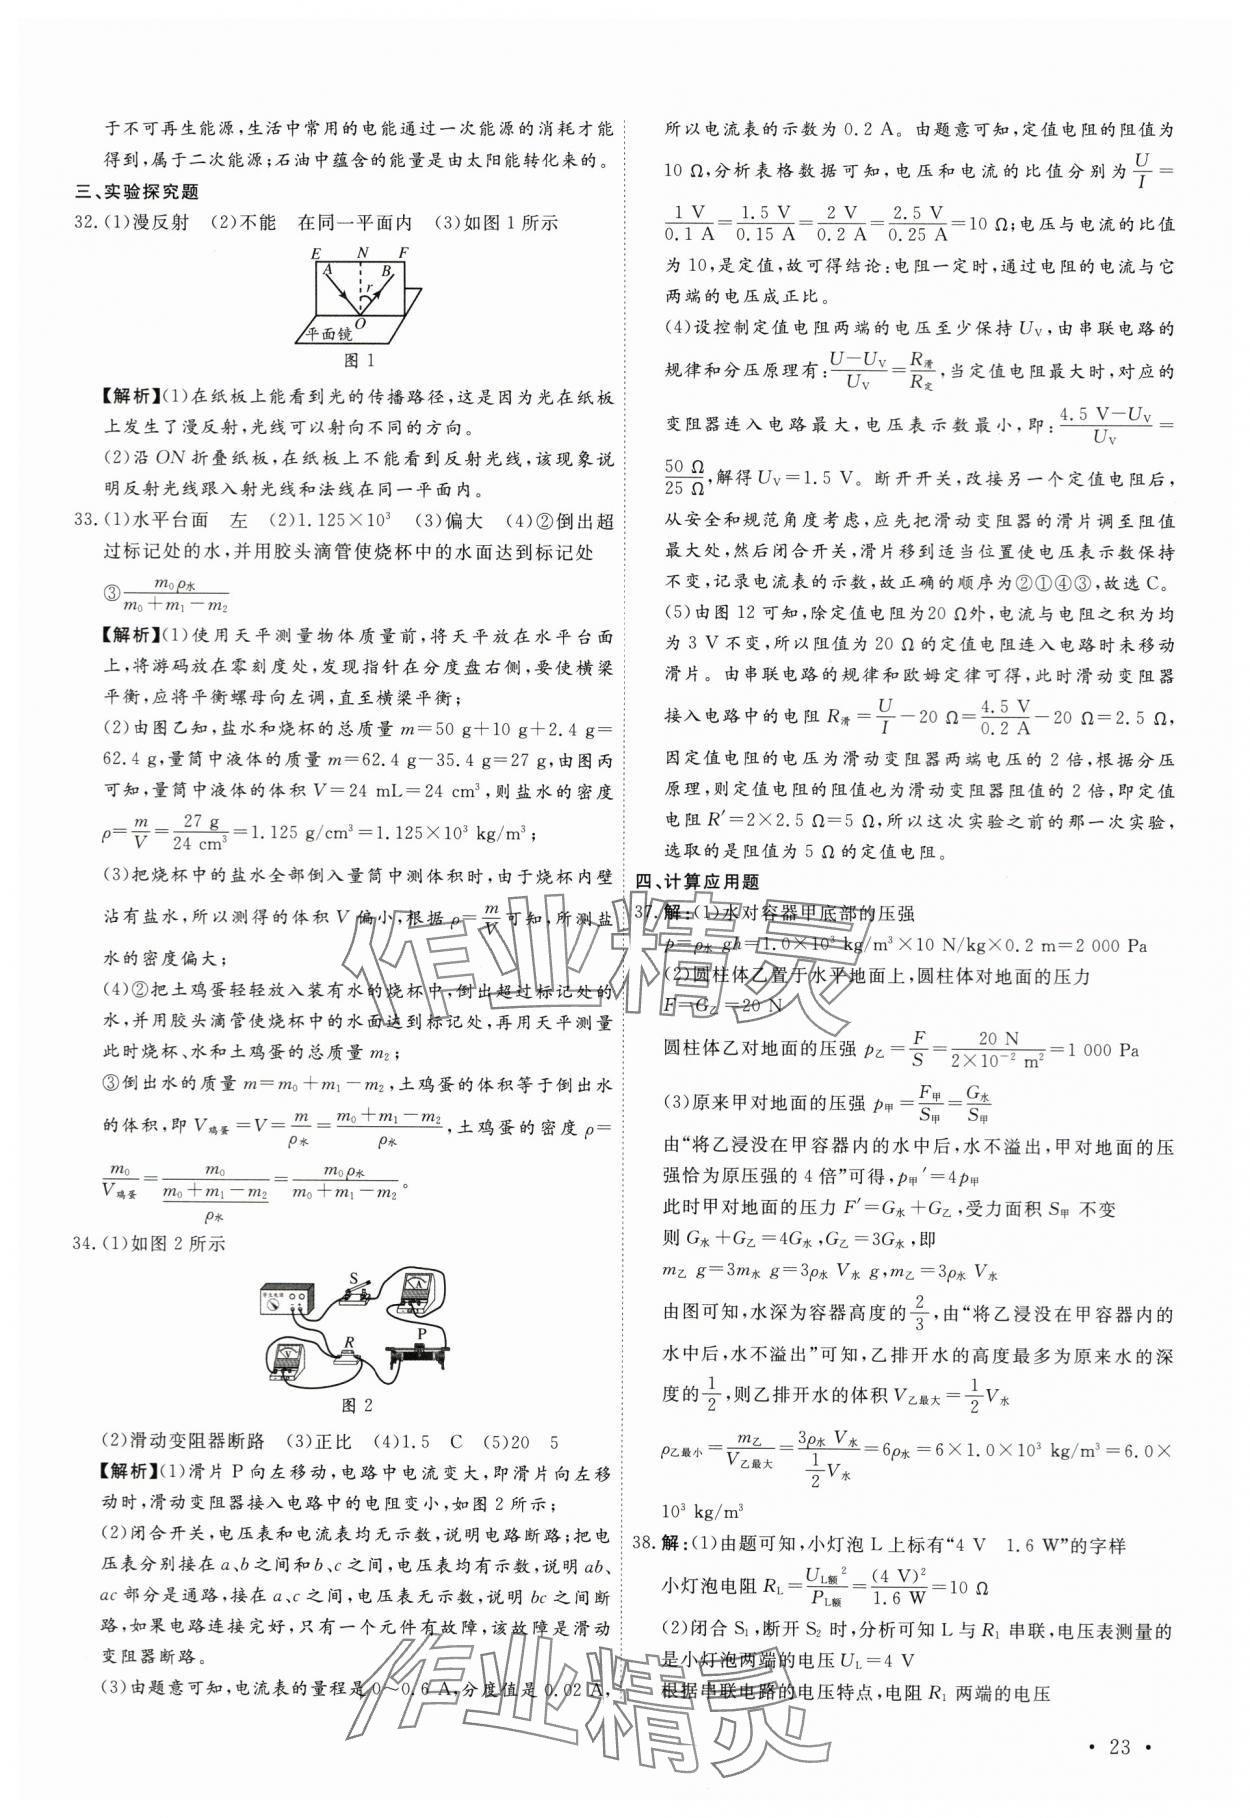 于不可再生能源，生活中常用的电能通过一次能源的消耗才能
得到，属于二次能源；石油中蕴含的能量是由太阳能转化来的。
三、实验探究题
32.(1)漫反射　(2)不能　在同一平面内　(3)如图 1 所示
E N F
A B
r
O
平面镜
图 1
【解析】(1)在纸板上能看到光的传播路径，这是因为光在纸板
上发生了漫反射，光线可以射向不同的方向。
(2)沿 ON 折叠纸板，在纸板上不能看到反射光线，该现象说
明反射光线跟入射光线和法线在同一平面内。
33.(1)水平台面　左　(2)1.125×10³　(3)偏大　(4)②倒出超
过标记处的水，并用胶头滴管使烧杯中的水面达到标记处
③m₀ρ水/(m₀+m₁−m₂)
【解析】(1)使用天平测量物体质量前，将天平放在水平台面
上，将游码放在零刻度处，发现指针在分度盘右侧，要使横梁
平衡，应将平衡螺母向左调，直至横梁平衡；
(2)由图乙知，盐水和烧杯的总质量 m=50 g+10 g+2.4 g=
62.4 g，量筒中液体的质量 m=62.4 g−35.4 g=27 g，由图丙
可知，量筒中液体的体积 V=24 mL=24 cm³，则盐水的密度
ρ=m/V=27 g/24 cm³=1.125 g/cm³=1.125×10³ kg/m³；
(3)把烧杯中的盐水全部倒入量筒中测体积时，由于烧杯内壁
沾有盐水，所以测得的体积 V 偏小，根据 ρ=m/V可知，所测盐
水的密度偏大；
(4)②把土鸡蛋轻轻放入装有水的烧杯中，倒出超过标记处的
水，并用胶头滴管使烧杯中的水面达到标记处，再用天平测量
此时烧杯、水和土鸡蛋的总质量 m₂；
③倒出水的质量 m=m₀+m₁−m₂，土鸡蛋的体积等于倒出水
的体积，即 V鸡蛋=V=m/ρ水=(m₀+m₁−m₂)/ρ水，土鸡蛋的密度 ρ=
m₀/V鸡蛋=m₀/((m₀+m₁−m₂)/ρ水)=m₀ρ水/(m₀+m₁−m₂)。
34.(1)如图 2 所示
学生电源
S
A
V
R
P
图 2
(2)滑动变阻器断路　(3)正比　(4)1.5　C　(5)20　5
【解析】(1)滑片 P 向左移动，电路中电流变大，即滑片向左移
动时，滑动变阻器接入电路中的电阻变小，如图 2 所示；
(2)闭合开关，电压表和电流表均无示数，说明电路断路；把电
压表分别接在 a、b 之间和 b、c 之间，电压表均有示数，说明 ab、
ac 部分是通路，接在 a、c 之间，电压表无示数，说明 bc 之间断
路，如果电路连接完好，只有一个元件有故障，该故障是滑动
变阻器断路。
(3)由题意可知，电流表的量程是 0～0.6 A，分度值是 0.02 A，
所以电流表的示数为 0.2 A。由题意可知，定值电阻的阻值为
10 Ω，分析表格数据可知，电压和电流的比值分别为U/I=
1 V/0.1 A=1.5 V/0.15 A=2 V/0.2 A=2.5 V/0.25 A=10 Ω；电压与电流的比值
为 10，是定值，故可得结论：电阻一定时，通过电阻的电流与它
两端的电压成正比。
(4)设控制定值电阻两端的电压至少保持 U_V，由串联电路的
规律和分压原理有：(U−U_V)/U_V=R滑/R定，当定值电阻最大时，对应的
变阻器连入电路最大，电压表示数最小，即：(4.5 V−U_V)/U_V=
50 Ω/25 Ω，解得 U_V=1.5 V。断开开关，改接另一个定值电阻后，
从安全和规范角度考虑，应先把滑动变阻器的滑片调至阻值
最大处，然后闭合开关，滑片移到适当位置使电压表示数保持
不变，记录电流表的示数，故正确的顺序为②①④③，故选 C。
(5)由图 12 可知，除定值电阻为20 Ω外，电流与电阻之积为均
为 3 V 不变，所以阻值为 20 Ω 的定值电阻连入电路时未移动
滑片。由串联电路的规律和欧姆定律可得，此时滑动变阻器
接入电路中的电阻 R滑=U/I−20 Ω=4.5 V/0.2 A−20 Ω=2.5 Ω，
因定值电阻的电压为滑动变阻器两端电压的 2 倍，根据分压
原理，则定值电阻的阻值也为滑动变阻器阻值的 2 倍，即定值
电阻 R′=2×2.5 Ω=5 Ω，所以这次实验之前的那一次实验，
选取的是阻值为 5 Ω 的定值电阻。
四、计算应用题
37.解：(1)水对容器甲底部的压强
p=ρ水 gh=1.0×10³ kg/m³×10 N/kg×0.2 m=2 000 Pa
(2)圆柱体乙置于水平地面上，圆柱体对地面的压力
F=G乙=20 N
圆柱体乙对地面的压强 p乙=F/S=20 N/(2×10⁻² m²)=1 000 Pa
(3)原来甲对地面的压强 p甲=F甲/S甲=G水/S甲
由“将乙浸没在甲容器内的水中后，水不溢出，甲对地面的压
强恰为原压强的 4 倍”可得，p甲′=4p甲
此时甲对地面的压力 F′=G水+G乙，受力面积 S甲 不变
则 G水+G乙=4G水，G乙=3G水，即
m乙 g=3m水 g=3ρ水 V水 g，m乙=3ρ水 V水
由图可知，水深为容器高度的2/3，由“将乙浸没在甲容器内的
水中后，水不溢出”可知，乙排开水的高度最多为原来水的深
度的1/2，则乙排开水的体积 V乙最大=1/2V水
ρ乙最小=m乙/V乙最大=3ρ水 V水/(1/2V水)=6ρ水=6×1.0×10³ kg/m³=6.0×
10³ kg/m³
38.解：(1)由题可知，小灯泡 L 上标有“4 V　1.6 W”的字样
小灯泡电阻 R_L=U_L额²/P_L额=(4 V)²/1.6 W=10 Ω
(2)闭合 S₁，断开 S₂ 时，分析可知 L 与 R₁ 串联，电压表测量的
是小灯泡两端的电压 U_L=4 V
根据串联电路的电压特点，电阻 R₁ 两端的电压
• 23 •
作业精灵
作业精灵